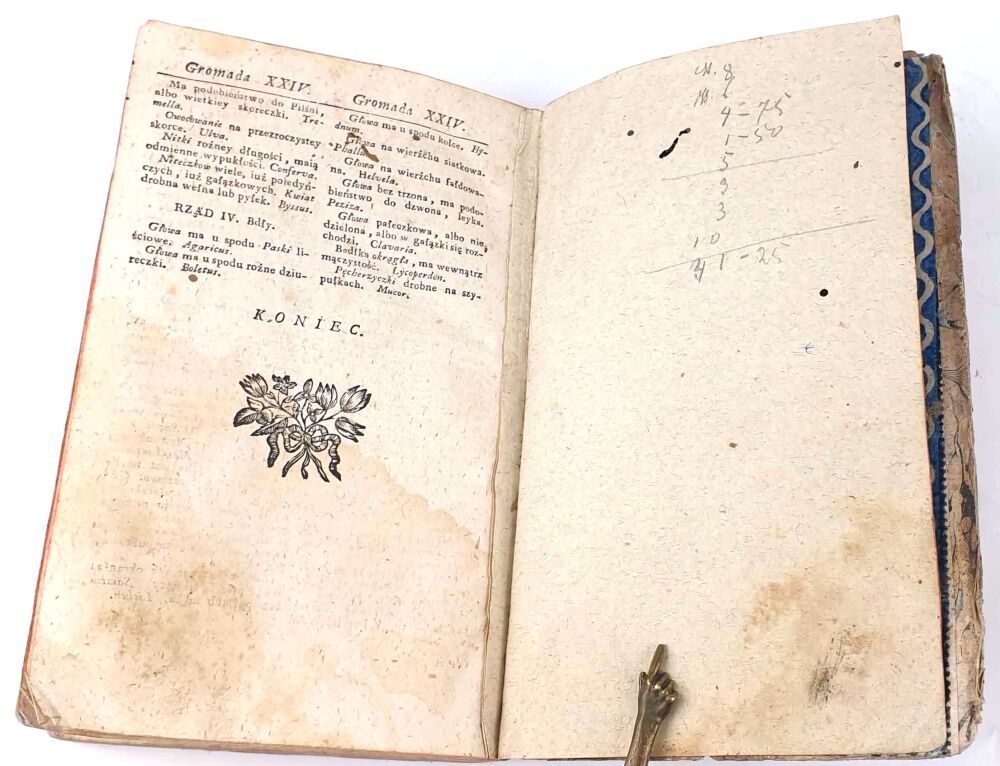 Gromada XXIV.
Ma podobieństwo do Pilśni,
albo wietkiey skoreczki. Tre-
mella.
Owocowanie na przezroczystey
skorce. Ulva.
Nitki rożney długości, maią
odmienne wypukłości. Conferva.
Niteczkow wiele, iuż poiedyń-
czych, iuż gałązkowych. Kwiat
drobna wełna lub pyłek. Byssus.
RZĄD IV. Bdły.
Głowa ma u spodu Paski li-
ściowe. Agaricus.
Głowa ma u spodu rożne dziu-
reczki. Boletus.
Gromada XXIV.
Głowa ma u spodu kolce. Hy-
dnum.
Głowa na wierźchu siatkowa.
Phallus.
Głowa na wierźchu fałdowa-
na. Helvela.
Głowa bez trzona, ma podo-
bieństwo do dzwona, leyka.
Peziza.
Głowa pałeczkowa, albo nie
dzielona, albo w gałązki się roz-
chodzi. Clavaria.
Bedłka okrągła, ma wewnątrz
mączystość. Lycoperdon.
Pęcherzyczki drobne na szy-
pułkach. Mucor.
KONIEC.
8
4=75
1=50
5
3
3
10
1=25